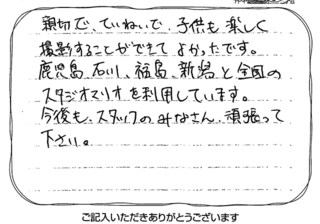 親切で、ていねいで、子供も楽しく
撮影することができてよかったです。
鹿児島、石川、福島、新潟と全国の
スタジオマリオを利用しています。
今後も、スタッフのみなさん、頑張って
下さい。
ご記入いただきありがとうございます